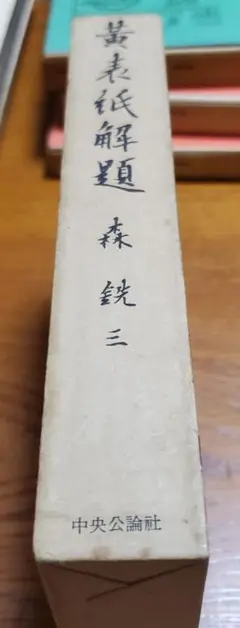 黃表紙解題
森銑三
中央公論社